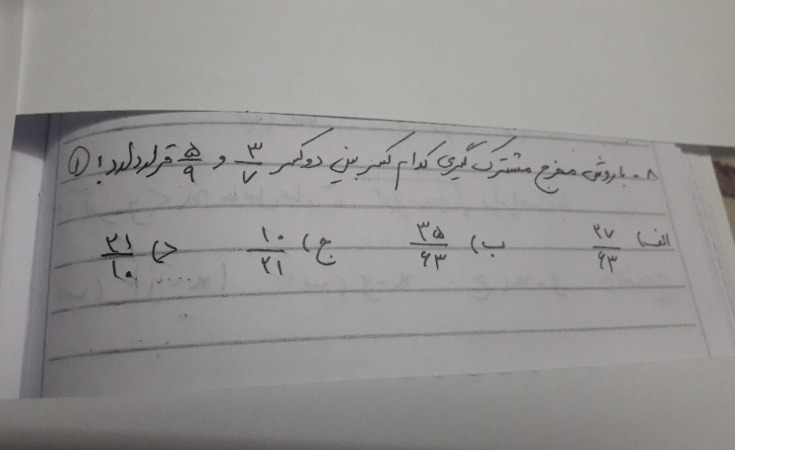 ۸. با روش مخرج مشترک گیری کدام کسر بین دو کسر ۳/۷ و ۵/۹ قرار دارد؟ ①
الف) ۲۷/۶۳ ب) ۳۵/۶۳ ج) ۱۰/۲۱ د) ۲۱/۱۰